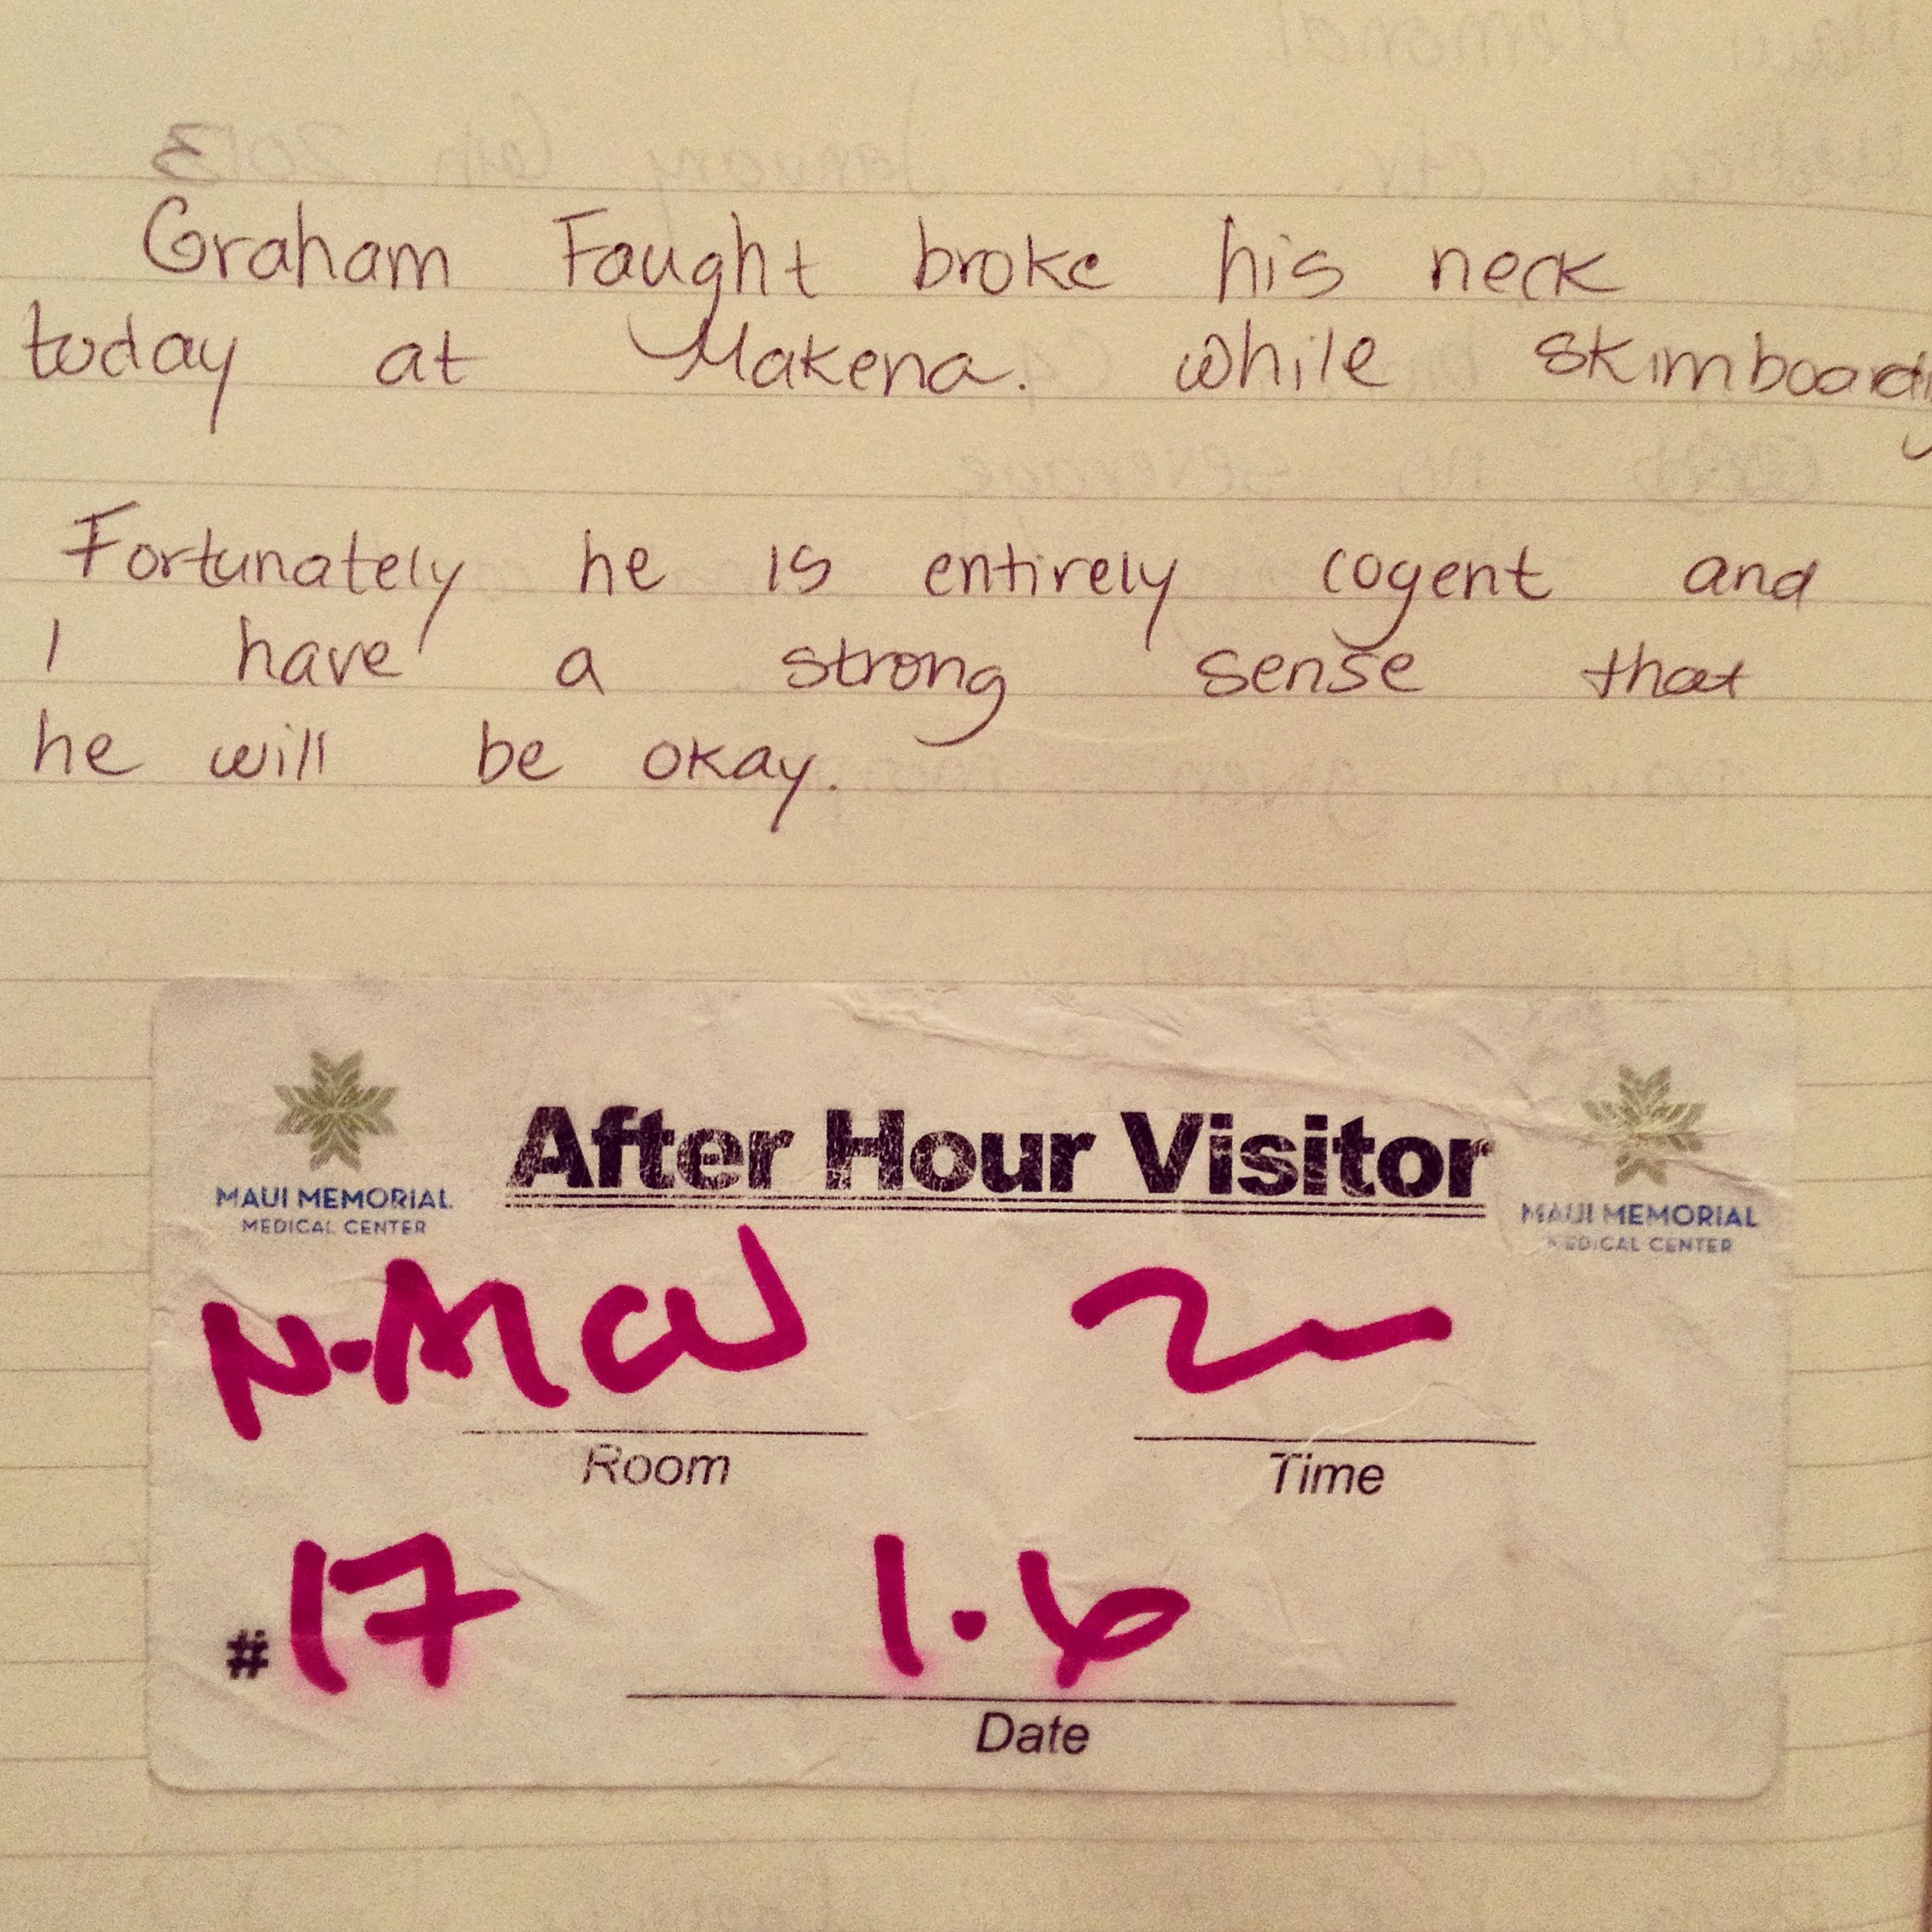 Graham Faught broke his neck
today at Makena. while skimboarding
Fortunately he is entirely cogent and
I have a strong sense that
he will be okay.
After Hour Visitor
MAUI MEMORIAL
MEDICAL CENTER
MAUI MEMORIAL
MEDICAL CENTER
Room
Time
#17 1.6
Date